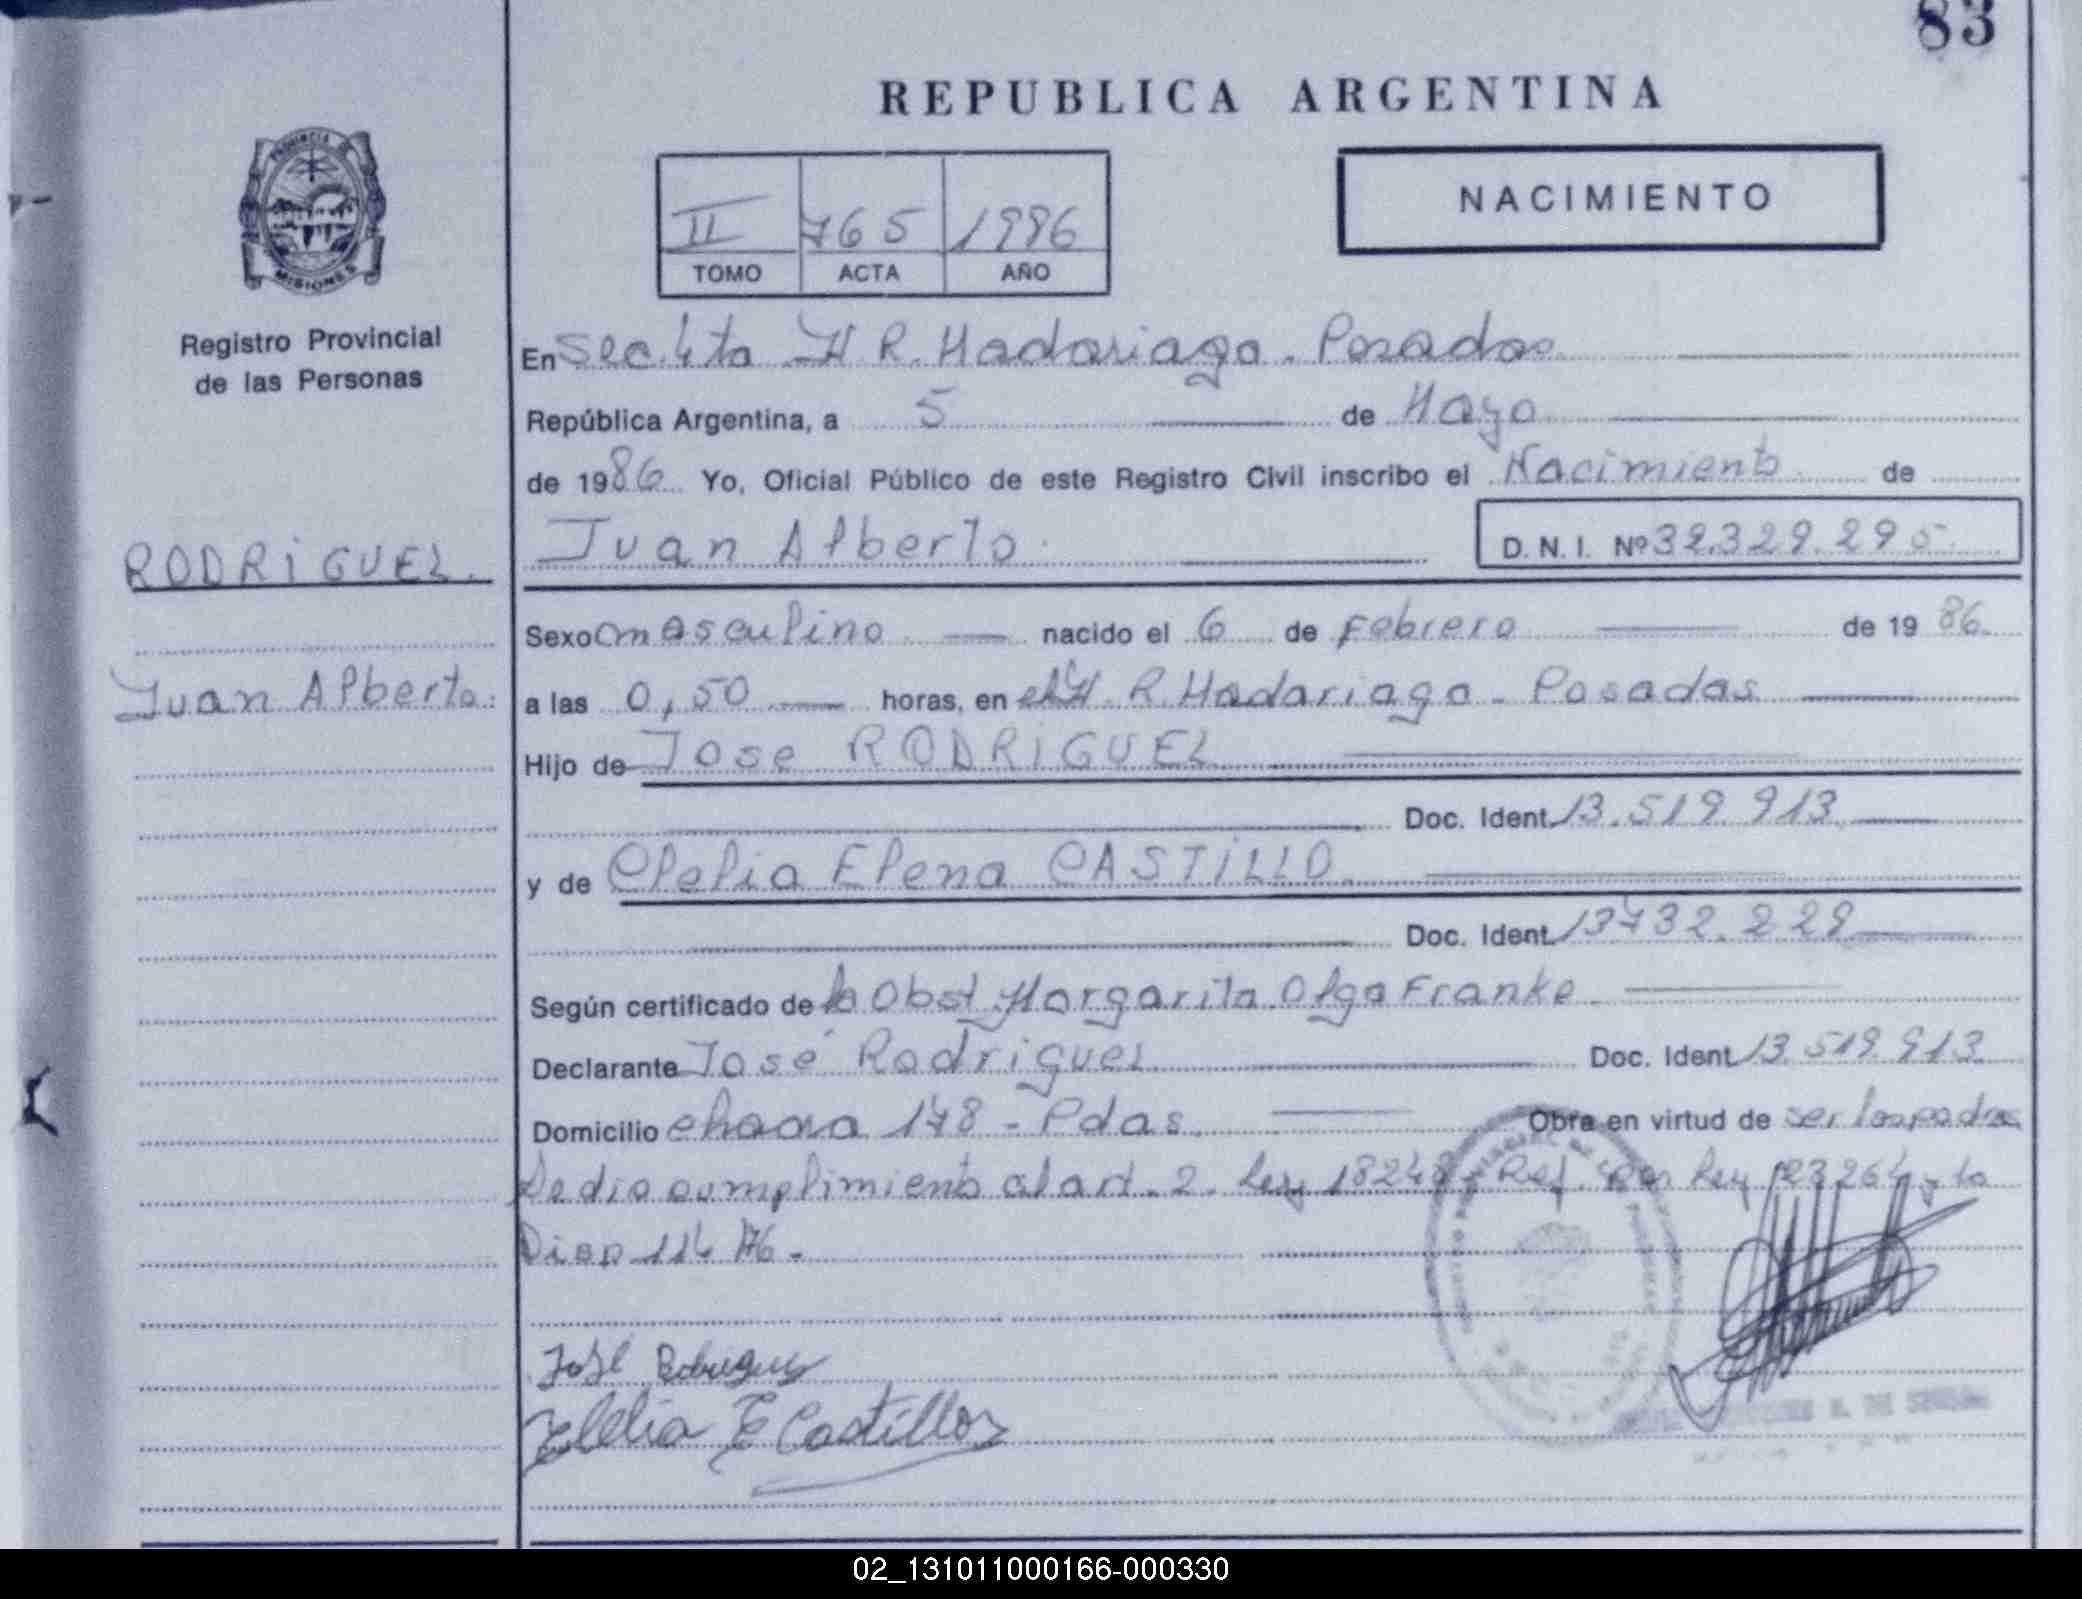 83
REPUBLICA ARGENTINA
PROVINCIA DE
MISIONES
II 765 1986
TOMO ACTA AÑO
NACIMIENTO
Registro Provincial
de las Personas
En Sec. 4ta H R. Madariaga - Posadas
República Argentina, a 5 de Mayo
de 1986 Yo, Oficial Público de este Registro Civil inscribo el Nacimiento de
RODRIGUEZ.
Juan Alberto
D. N. I. Nº 32.329.295
Sexo masculino nacido el 6 de Febrero de 19 86
Juan Alberto
a las 0,50 horas, en el H. R. Madariaga - Posadas
Hijo de Jose RODRIGUEZ
Doc. Ident. 13.519.913
y de Clelia Elena CASTILLO
Doc. Ident. 13732.229
Según certificado de la Obst Margarita Olga Franke
Declarante José Rodriguez Doc. Ident 13.519.913
Domicilio chacra 178 - Pdas. Obra en virtud de ser los padres
Se dio cumplimiento al art. 2. Ley 18248 Ref. por Ley 23264 y la
Disp 114/76.-
José Rodriguez
Clelia E Castillo
02_131011000166-000330